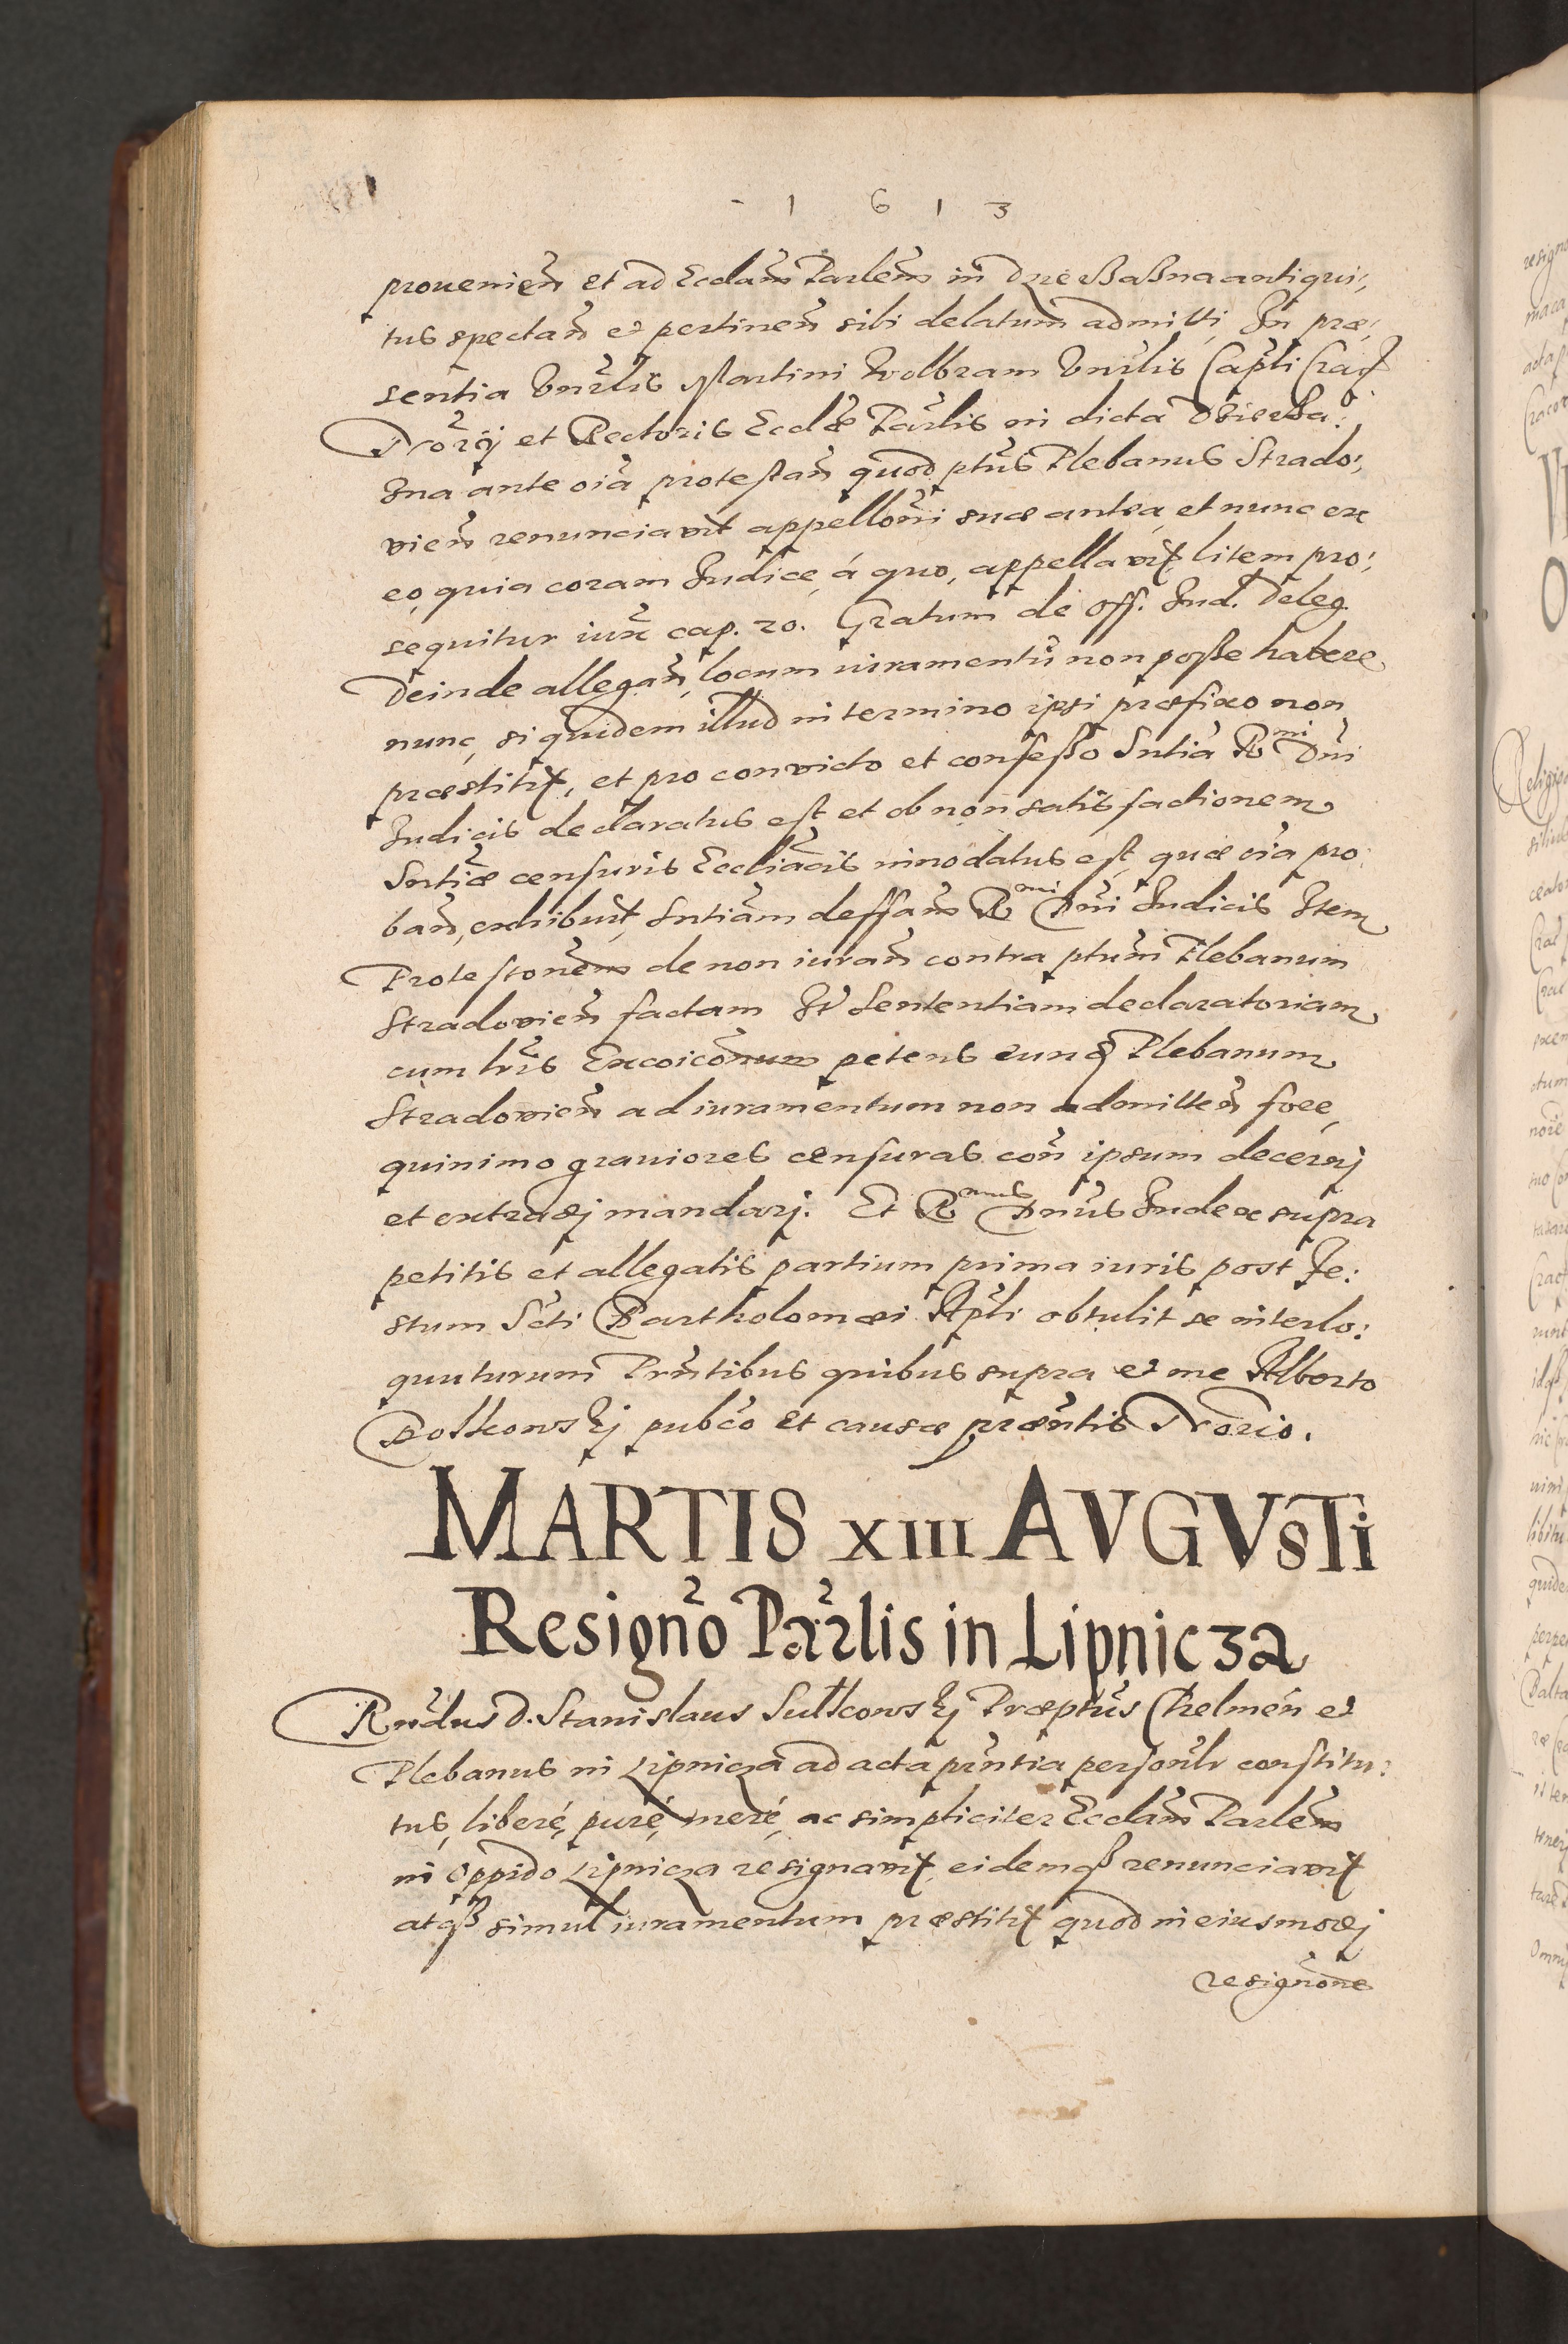 1613
prouenien̄ et ad Eccl̄am Parl̄em in Dzierżażna antiqui,
tus spectan̄ et pertinen̄ sibi delatum admitti, In præ,
sentia Vnr̄lis Martini Wolbram Vnr̄lis Cap̄li Crac̄
Nor̄ij et Rectoris Eccl̄æ Par̄lis in dicta Dzierża:
zna ante oīa protestan̄ quod pt̄us Plebanus Strado:,
vien̄ renunciavit appello̅ni suæ antea, et nunc ex
eo, quia coram Iudice, á quo, appellavit litem pro:
sequitur iux̄ cap. 20. Gratum de Off. Iud. Deleg
Deinde allegan̄, locum iuramentū non poße habere
nunc, siquidem illud in termino ipsi præfixo non
præstitit, et pro convicto et confeßo Sn̄tia R^mi Dn̄i
Iudicis declaratus est et ob non satisfactionem
Sn̄tiæ censuris Eccl̄iacis innodatus est, quæ oīa pro
ban̄, exhibuit Sn̄tiam deffam R^mi Dn̄i Iudicis Item
Protesto̅nem de non iuran̄ contra pt̄um Plebanum
Stradovien̄ factam It̄ Sententiam declaratoriam
cum lr̄is Excoico̅num petens eunq̄ Plebanum
Stradovien̄ ad iuramentum non admitten̄ fore,
quinimo grauiores censuras con̄ ipsum decernj
et extradj mandarj. Et R^mus Dn̄us Iudex supra
petitis et allegatis partium prima iuris post Fe:
stum S̄cti Bartholomæi Ap̄li obtulit se interlo:
quuturum Prn̄tibus quibus supra et me Alberto
Boltkowskj pub̄co et causæ præn̄tis Nor̄io.
MARTIS XIII AVGVSTi
Resign̄o Par̄lis in Lipnicza
Rn̄dus D. Stanislaus Sulkowskj Præpt̄us Chelmen̄ et
Plebanus in Lipnicza ad acta prn̄tia person̄lr constitu:
tus, liberé, puré, meré, ac simpliciter Eccl̄am Parl̄em
in Oppido Lipnicza resignavit, eidemqȝ renunciavit
atqȝ simul iuramentum præstitit quod in eiusmodj
resign̄one